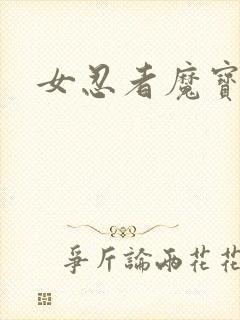 女忍者魔寶
爭斤論兩花花